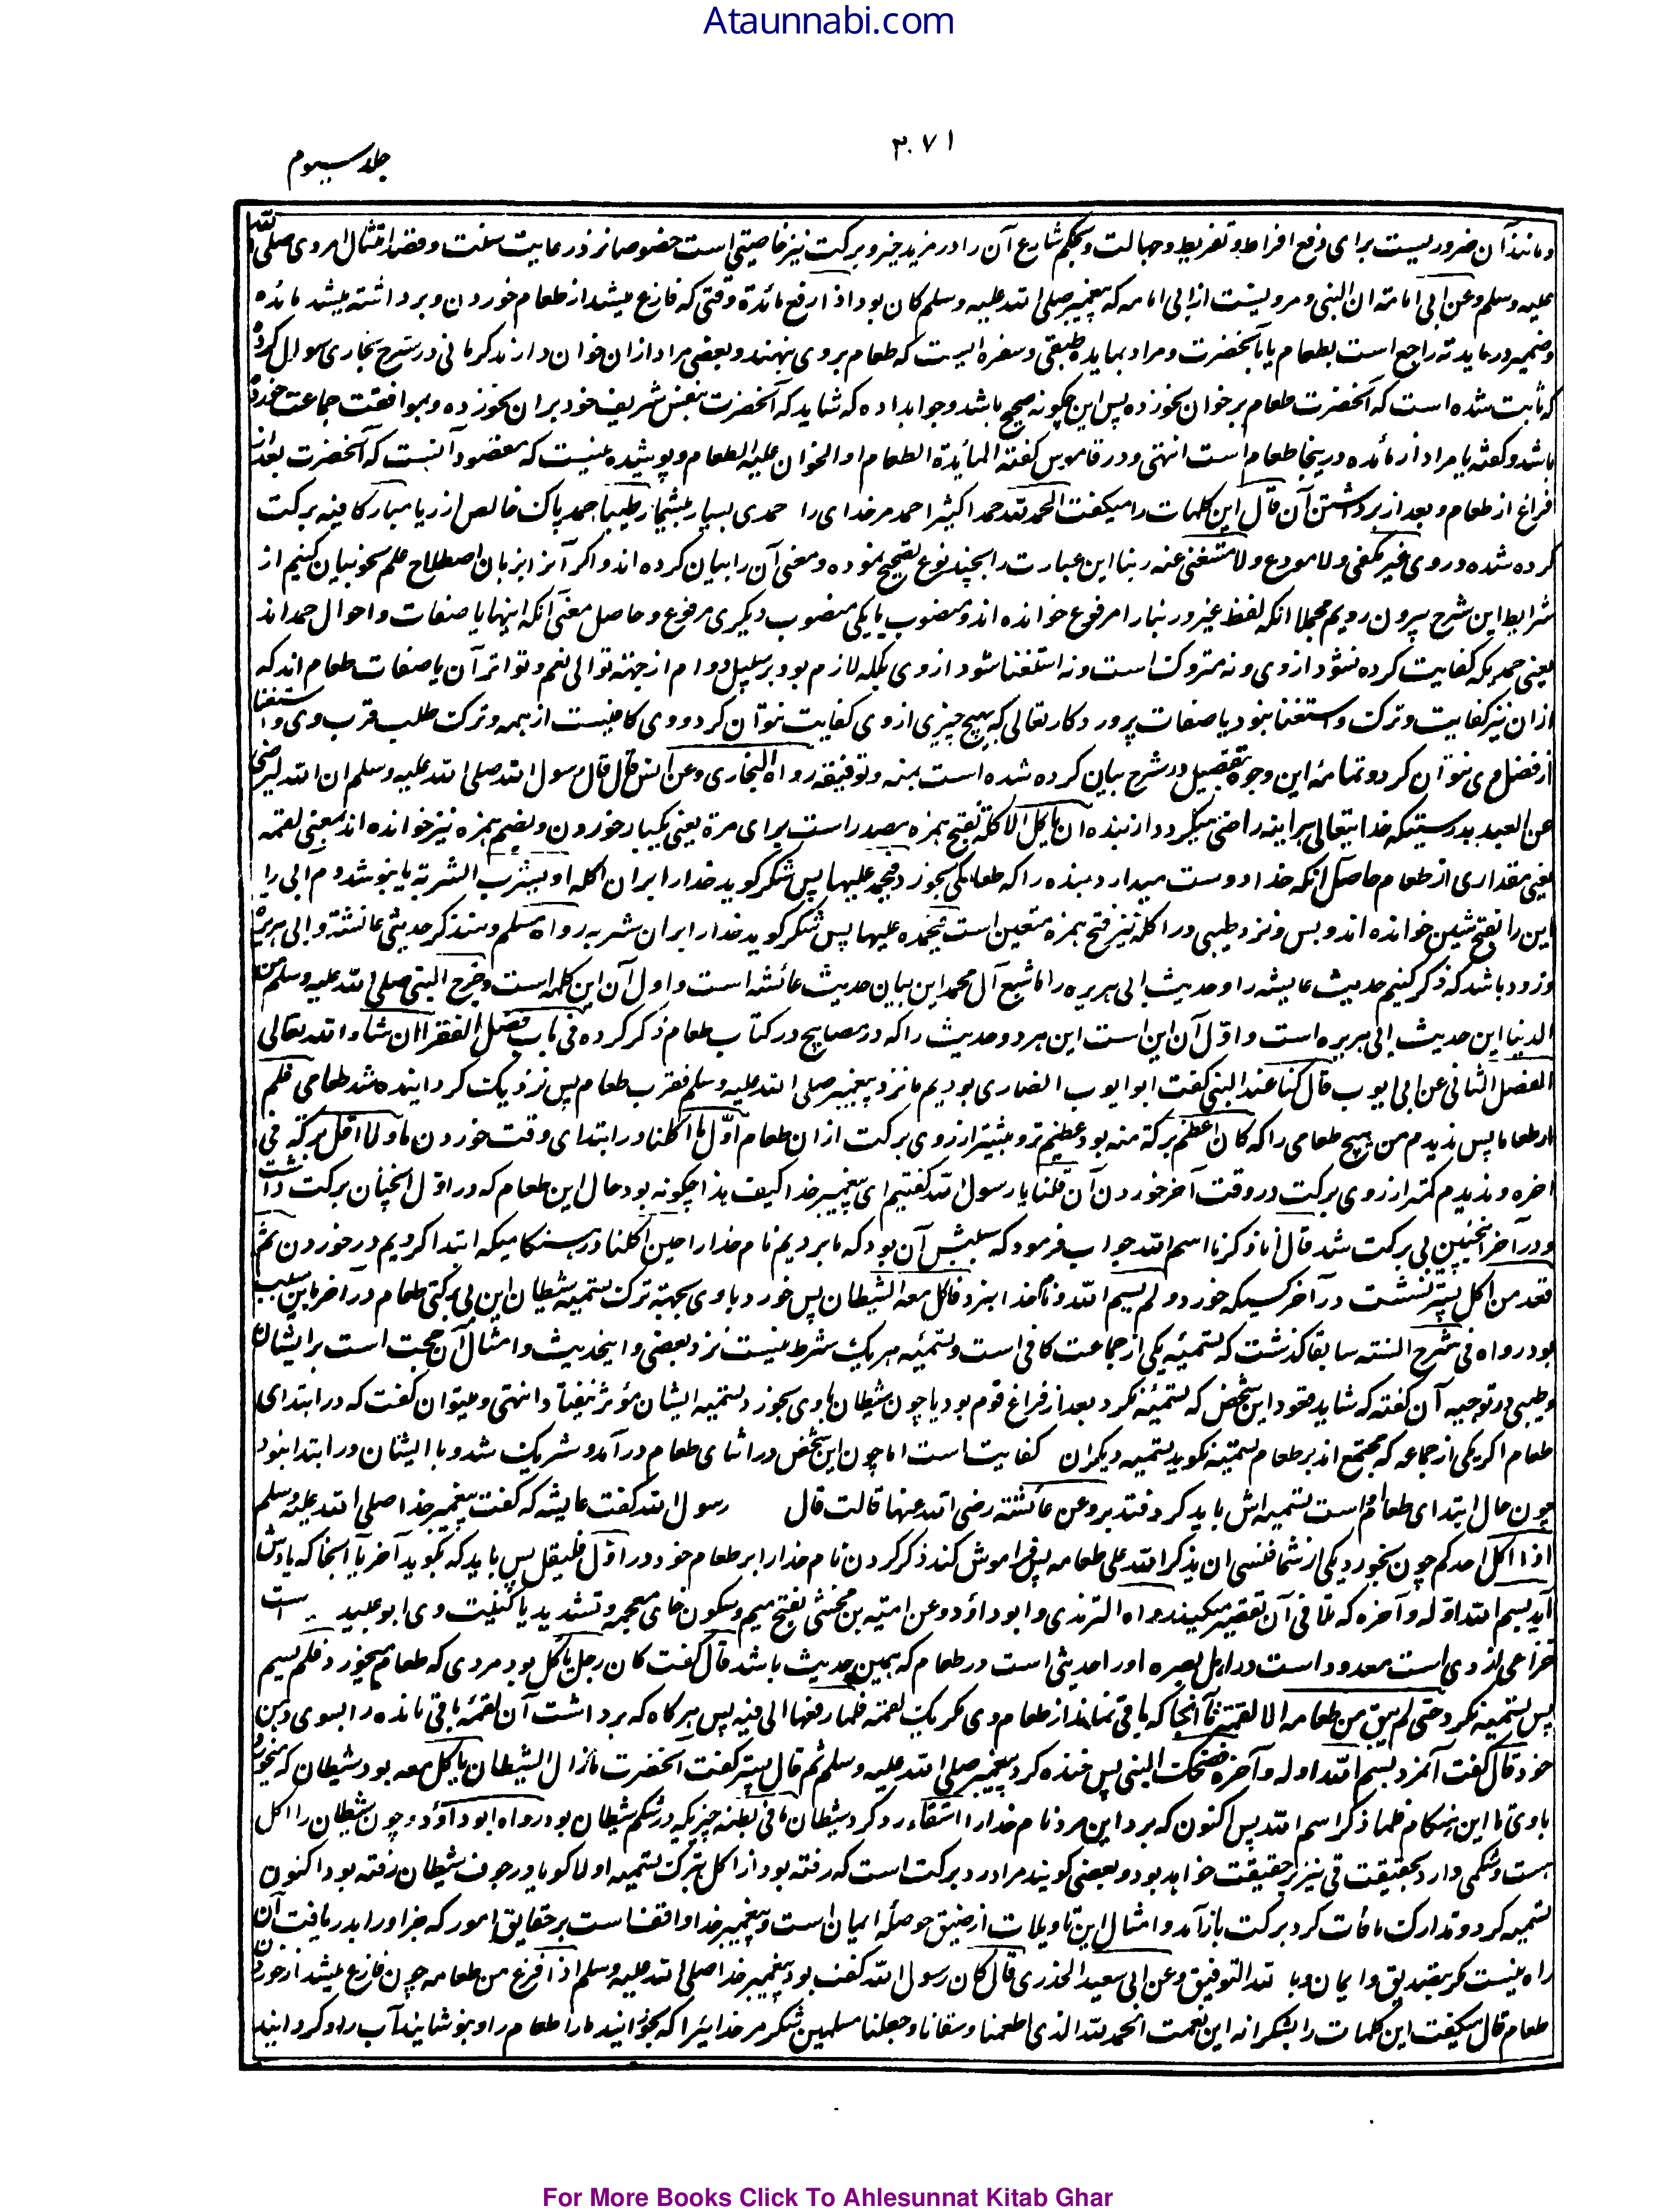 Ataunnabi.com
۳۰۷۱
جلد سیوم
و مانند آن ضروریست برای دفع افراط و تفریط و جهالت و بحکم شارع آن را در مزید خیر و برکت نیز خاصیتی است خصوصا نزد رعایت سنت و قصد امتثال امر وی صلی الله
علیه وسلم وعن ابی امامة ان النبی و مرویست از ابی امامه که پیغمبر صلی الله علیه وسلم کان بود اذا رفع مائدة وقتی که فارغ میشد از طعام خوردن و برداشته میشد مائده
و ضمیر در مایدته راجع است بطعام یا بآنحضرت و مراد بمایده طبقی و سفره ایست که طعام بر وی بنهند و بعضی مراد ازان خوان دارند کرمانی در شرح بخاری سوال کرده
که ثابت شده است که آنحضرت طعام بر خوان نخورده پس این چگونه صحیح باشد و جواب داده که شاید که آنحضرت بنفس شریف خود بران نخورده و بموافقت جماعت خورده
باشد و گفته یا مراد از مائده درینجا طعام است انتهی و در قاموس گفته المایدة الطعام او الخوان علیه الطعام و پوشیده نیست که مقصود آنست که آنحضرت بعد از
فراغ از طعام و بعد از برداشتن آن قال این کلمات را میگفت الحمد لله حمدا کثیرا حمد مر خدای را حمدی بسیار بیشمار طیبا حمد پاک خالص از ریا مبارکا فیه برکت
کرده شده در وی غیر مکفی ولا مودع ولا مستغنی عنه ربنا این عبارت را بچند نوع تصحیح نموده و معنی آن را بیان کرده اند و اگر آنرا بزبان اصطلاح علم نحو بیان کنیم از
شرایط این شرح بیرون رویم مجملا آنکه لفظ غیر و ربنا را مرفوع خوانده اند و منصوب یا یکی منصوب دیگری مرفوع و حاصل معنی آنکه اینها یا صفات و احوال حمد اند
یعنی حمدیکه کفایت کرده نشود از وی و نه متروکست و نه استغنا شود از وی بلکه لازم بود بر سبیل دوام از جهته توالی نعم و تواتر آن یا صفات طعام اند که
ازان نیز کفایت و ترک و استغنا نبود یا صفات پروردکار تعالی که هیچ چیزی از وی کفایت نتوان کرد و وی کافیست از همه و ترک طلب قرب وی و استغنا
از فضل وی نتوان کرد و تمامه این وجوه بتفصیل در شرح بیان کرده شده است بمنه و توفیقه رواه البخاری وعن انس قال قال رسول الله صلی الله علیه وسلم ان الله لیرضی
عن العبد بدرستیکه خدایتعالی هراینه راضی میگردد از بنده ان یاکل الاکلة بفتح همزه مصدر است برای مرة یعنی یکبار خوردن و بضم همزه نیز خوانده اند بمعنی لقمه
یعنی مقداری از طعام حاصل آنکه خدا دوست میدارد بنده را که طعامی بخورد فیحمده علیها پس شکر گوید خدا را بران اکله او یشرب الشربة یا بنوشد دم آبی را
این را بفتح شین خوانده اند و بس و نزد طیبی در اکله نیز فتح همزه متعین است فیحمده علیها پس شکر گوید خدا را بران شربه رواه مسلم وسنذکر حدیثی عائشة وابی هریرة
و زود باشد که ذکر کنیم حدیث عایشه را و حدیث ابی هریره را ما شبع آل محمد این بیان حدیث عائشه است و اول آن این کلمه است وخرج النبی صلی الله علیه وسلم من
الدنیا این حدیث ابی هریره است و اول آن این است این هر دو حدیث را که در مصابیح در کتاب طعام ذکر کرده فی باب فضل الفقراء ان شاء الله تعالی
الفصل الثانی عن ابی ایوب قال کنا عند النبی گفت ابوایوب انصاری بودیم ما نزد پیغمبر صلی الله علیه وسلم فقرب طعام پس نزدیک گردانیده شد طعامی فلم
ار طعاما پس ندیدم من هیچ طعامی را که کان اعظم برکة منه بود عظیم تر و بیشتر از روی برکت ازان طعام اول ما اکلنا در ابتدای وقت خوردن ما ولا اقل برکة فی
آخره و ندیدم کمتر از روی برکت در وقت آخر خوردن آن قلنا یا رسول الله گفتیم ای پیغمبر خدا کیف هذا چگونه بود حال این طعام که در اول آنچنان برکت داشت
و در آخر اینچنین بی برکت شد قال انا ذکرنا اسم الله جواب فرمود که سببش آن بود که ما بردیم نام خدا را حین اکلنا در هنگامیکه ابتدا کردیم در خوردن ثم
قعد من اکل پستر نشست در آخر کسیکه خورد و لم یسم الله و نام خدا نبرد فاکل معه الشیطان پس خورد با وی بجهته ترک تسمیه شیطان این بی برکتی طعام در آخر باین سبب
بود رواه فی شرح السنة سابقا گذشت که تسمیه یکی از جماعت کافی است و تسمیه هر یک شرط نیست نزد بعضی و اینحدیث و امثال آن حجت است بر ایشان
و طیبی در توجیه آن گفته که شاید قعود این شخص که تسمیه نکرد بعد از فراغ قوم بود یا چون شیطان با وی بخورد تسمیه ایشان مؤثر نیفتاد انتهی و میتوان گفت که در ابتدای
طعام اگر یکی از جماعه که مجتمع اند بر طعام تسمیه نگوید تسمیه دیگران کفایت است اما چون این شخص در اثنای طعام در آمد و شریک شد و با ایشان در ابتدا نبود
چون حال ابتدای طعام است تسمیه اش باید کرد فتدبر وعن عائشة رضی الله عنها قالت قال رسول الله گفت عایشه که گفت پیغمبر خدا صلی الله علیه وسلم
اذا اکل احدکم چون بخورد یکی از شما فنسی ان یذکر الله علی طعامه پس فراموش کند ذکر کردن نام خدا را بر طعام خود در اول فلیقل پس باید که بگوید آخر یا آنجا که یادش
آید بسم الله اوله وآخره که تلافی آن تقصیر میکند رواه الترمذی وابو داؤد وعن امیة بن مخشی بفتح میم و سکون خای معجمه و تشدید یا کنیت وی ابو عبید است
خزاعی ازدی است معدود است در اهل بصره او را حدیثی است در طعام که همین حدیث باشد قال گفت کان رجل یاکل بود مردی که طعام میخورد فلم یسم
پس تسمیه نکرد حتی لم یبق من طعامه الا لقمة تا آنجا که باقی نماند از طعام وی مگر یک لقمه فلما رفعها الی فیه پس هرگاه که برداشت آن لقمه باقی مانده را بسوی دهن
خود قال گفت آنمرد بسم الله اوله وآخره فضحک النبی پس خنده کرد پیغمبر صلی الله علیه وسلم ثم قال پستر گفت آنحضرت ما زال الشیطان یاکل معه بود شیطان که میخورد
با وی تا این هنگام فلما ذکر اسم الله پس اکنون که برد این مرد نام خدا را استقاء رد کرد شیطان ما فی بطنه چیزیکه در شکم شیطان بود رواه ابو داؤد و چون شیطان را اکل
هست و شکمی دارد بحقیقت قی نیز بر حقیقت خواهد بود و بعضی گویند مراد رد برکت است که رفته بود از اکل بترک تسمیه اولا گویا در جوف شیطان رفته بود اکنون
تسمیه کرد و تدارک مافات کرد برکت باز آمد و امثال این تاویلات از ضیق حوصله ایمان است و پیغمبر خدا واقفست بر حقایق امور که جز او را بدریافت آن
راه نیست مگر بتصدیق و ایمان وبا لله التوفیق وعن ابی سعید الخدری قال کان رسول الله گفت بود پیغمبر خدا صلی الله علیه وسلم اذا فرغ من طعامه چون فارغ میشد از خوردن
طعام قال میگفت این کلمات را بشکرانه این نعمت الحمد لله الذی اطعمنا وسقانا وجعلنا مسلمین شکر مر خدایرا که بخورانید ما را طعام را و بنوشانید آب را و گردانید
For More Books Click To Ahlesunnat Kitab Ghar